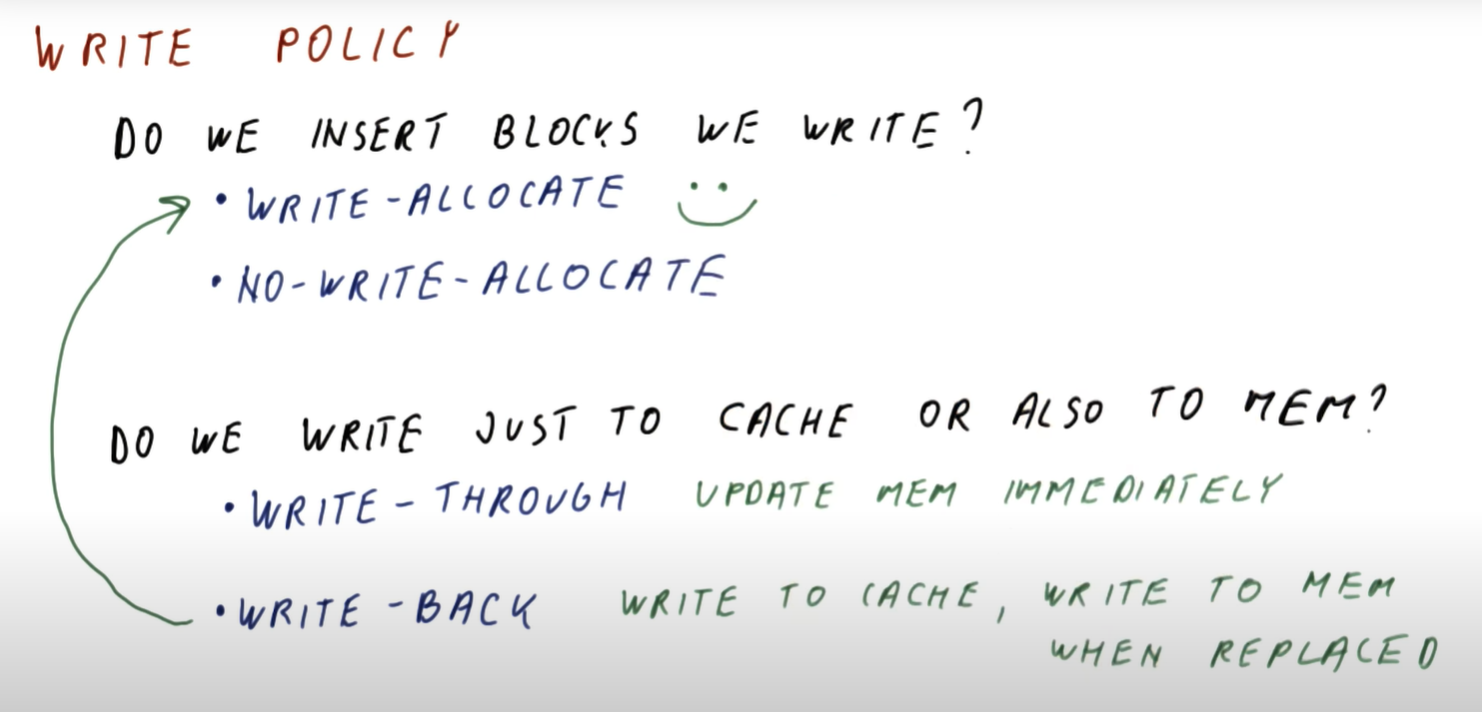 WRITE POLICY
DO WE INSERT BLOCKS WE WRITE?
• WRITE-ALLOCATE
• NO-WRITE-ALLOCATE
DO WE WRITE JUST TO CACHE OR ALSO TO MEM?
• WRITE-THROUGH UPDATE MEM IMMEDIATELY
• WRITE-BACK WRITE TO CACHE, WRITE TO MEM
WHEN REPLACED